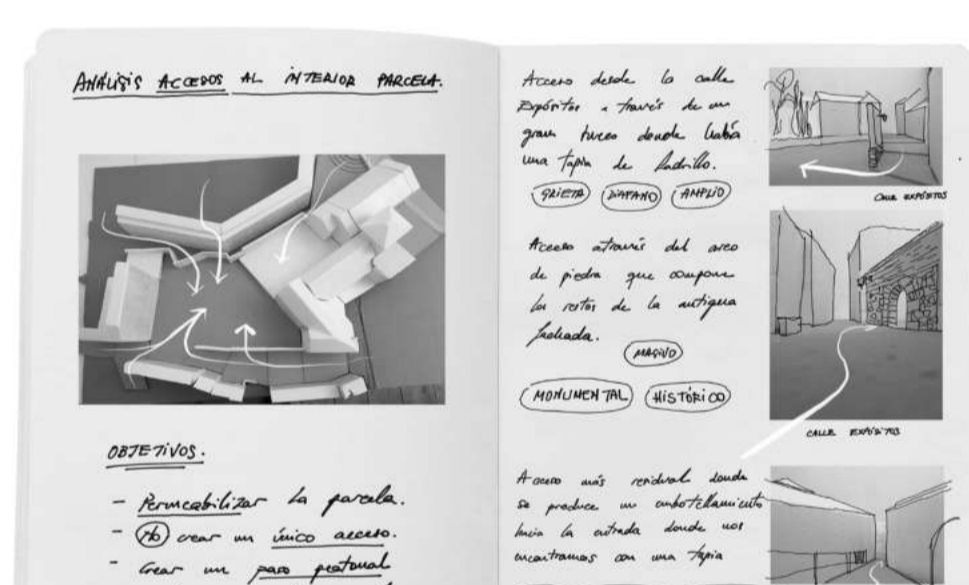 ANÁLISIS ACCESOS AL INTERIOR PARCELA.
OBJETIVOS.
- Permeabilizar la parcela.
- NO crear un único acceso.
- Crear un paso peatonal
Acceso desde la calle
Expósitos a través de un
gran hueco donde había
una tapia de ladrillo.
GRIETA DIÁFANO AMPLIO
CALLE EXPÓSITOS
Acceso através del arco
de piedra que compone
los restos de la antigua
fachada.
MASIVO
MONUMENTAL HISTÓRICO
CALLE EXPÓSITOS
Acceso más residual donde
se produce un embotellamiento
hacia la entrada donde nos
encontramos con una tapia